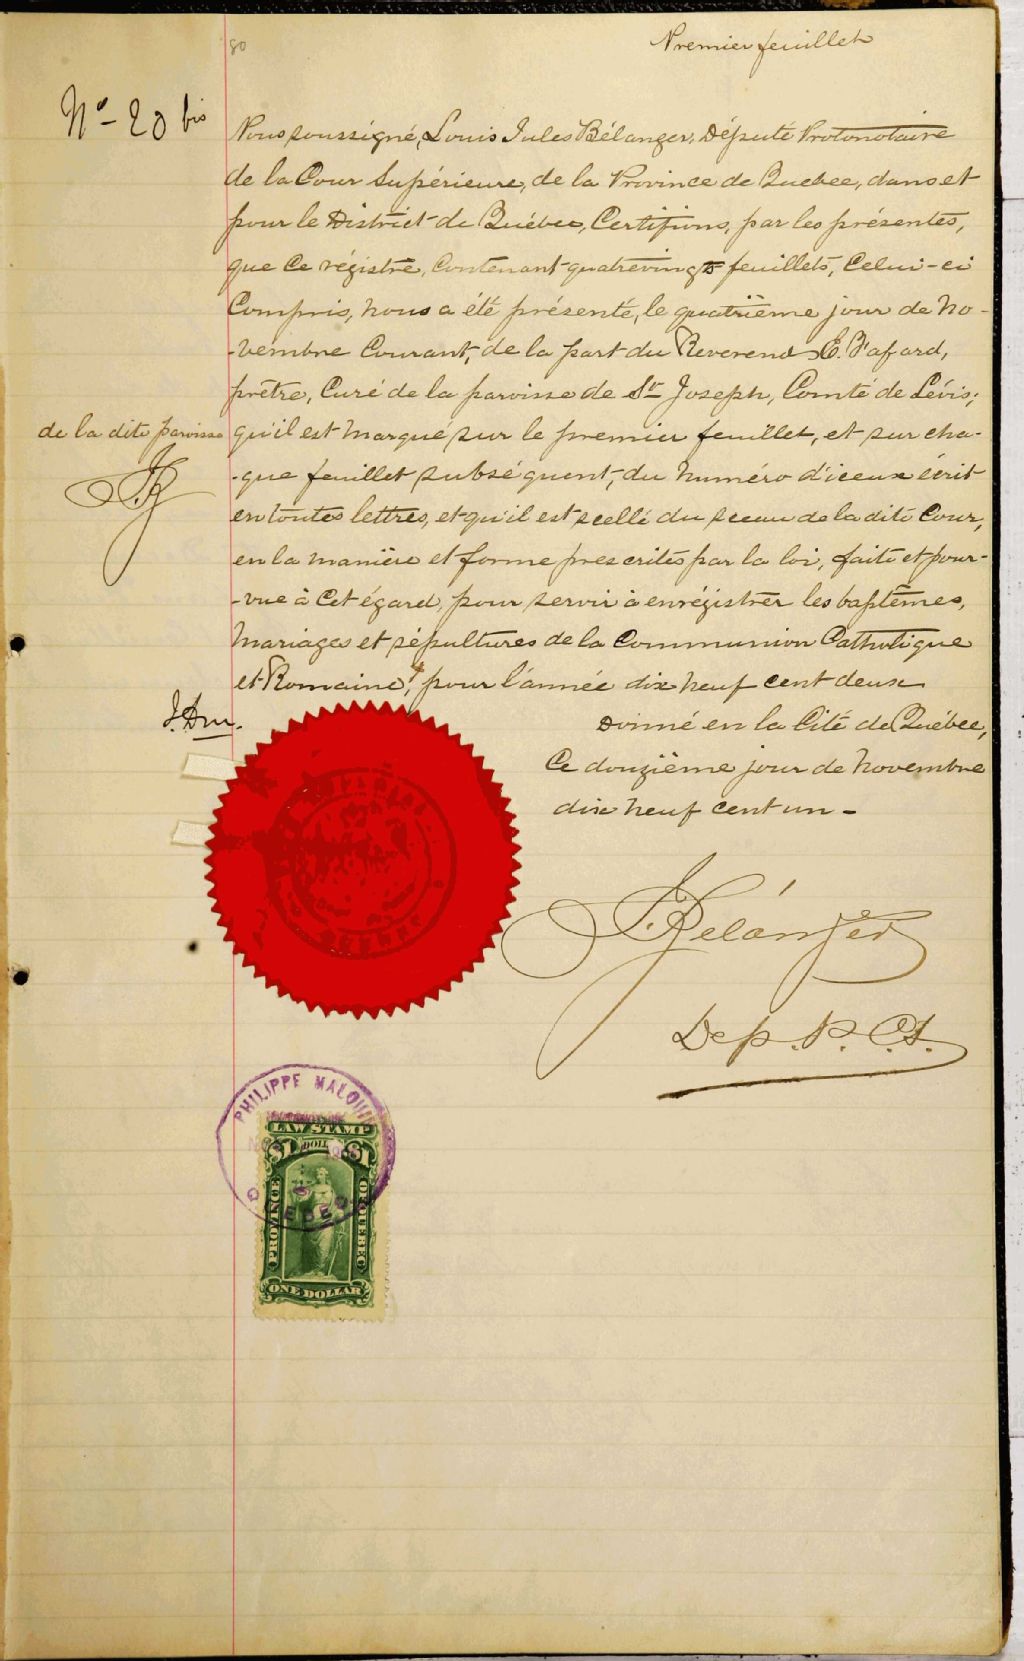 80
Premier feuillet
No- 20 bis
Nous soussigné, Louis Jules Bélanger, Député Protonotaire
de la Cour Supérieure, de la Province de Quebec, dans et
pour le District de Québec, Certifions, par les présentes,
que Ce régistre, Contenant quatrevingts feuillets, Celui-ci
Compris, nous a été présenté, le quatrième jour de No-
-vembre Courant, de la part du Reverend E. Fafard,
prêtre, Curé de la paroisse de St Joseph, Comté de Lévis;
qu'il est Marqué sur le premier feuillet, et sur cha-
-que feuillet subséquent, du Numéro d'iceux écrit
en toutes lettres, et qu'il est scellé du sceau de la dite Cour,
en la manière et forme prescrites par la loi, faite et pour-
-vue à Cet égard, pour servir à enrégistrer les baptêmes,
Mariages et sépultures de la Communion Catholique
et Romaine, pour l'année dix neuf cent deux
de la dite paroisse
Donné en la Cité de Québec,
Ce douzième jour de Novembre
dix neuf cent un -
Bélanger
Dep. P. C. S.
PHILIPPE MALOUIN
QUEBEC
LAW STAMP
$1 DOLLAR $1
PROVINCE OF QUEBEC
ONE DOLLAR